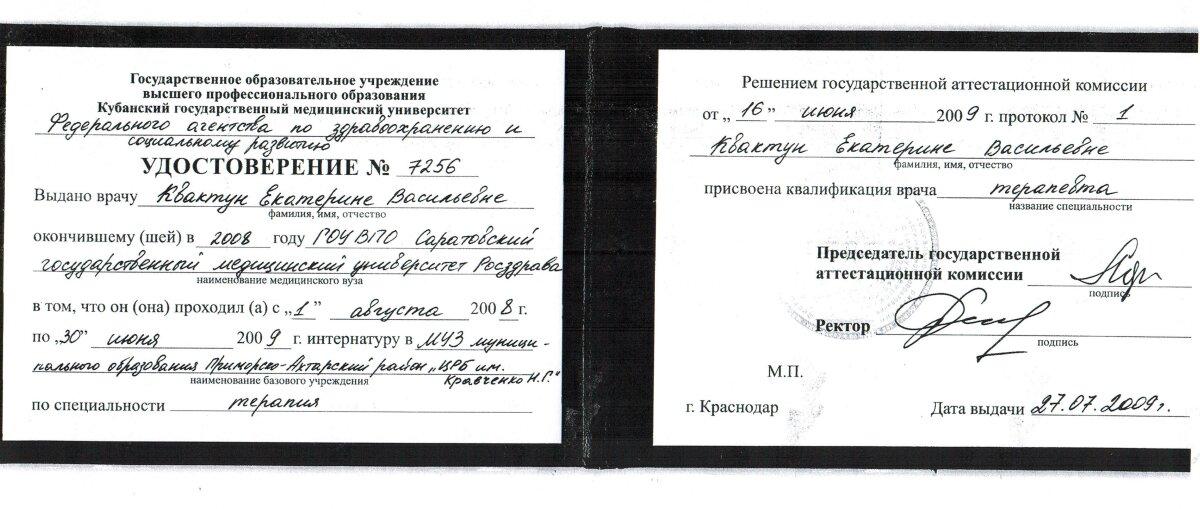 Государственное образовательное учреждение
высшего профессионального образования
Кубанский государственный медицинский университет
Федерального агентства по здравоохранению и
социальному развитию
УДОСТОВЕРЕНИЕ № 7256
Выдано врачу Квактун Екатерине Васильевне
фамилия, имя, отчество
окончившему (шей) в 2008 году ГОУ ВПО Саратовский
государственный медицинский университет Росздрава
наименование медицинского вуза
в том, что он (она) проходил (а) с „1” августа 2008 г.
по „30” июня 2009 г. интернатуру в МУЗ муници-
пального образования Приморско-Ахтарский район „ЦРБ им.
Кравченко Н.Г."
наименование базового учреждения
по специальности терапия
Решением государственной аттестационной комиссии
от „ 16 ” июня 2009 г. протокол № 1
Квактун Екатерине Васильевне
фамилия, имя, отчество
присвоена квалификация врача терапевта
название специальности
Председатель государственной
аттестационной комиссии
подпись
Ректор
подпись
М.П.
г. Краснодар Дата выдачи 27.07.2009г.